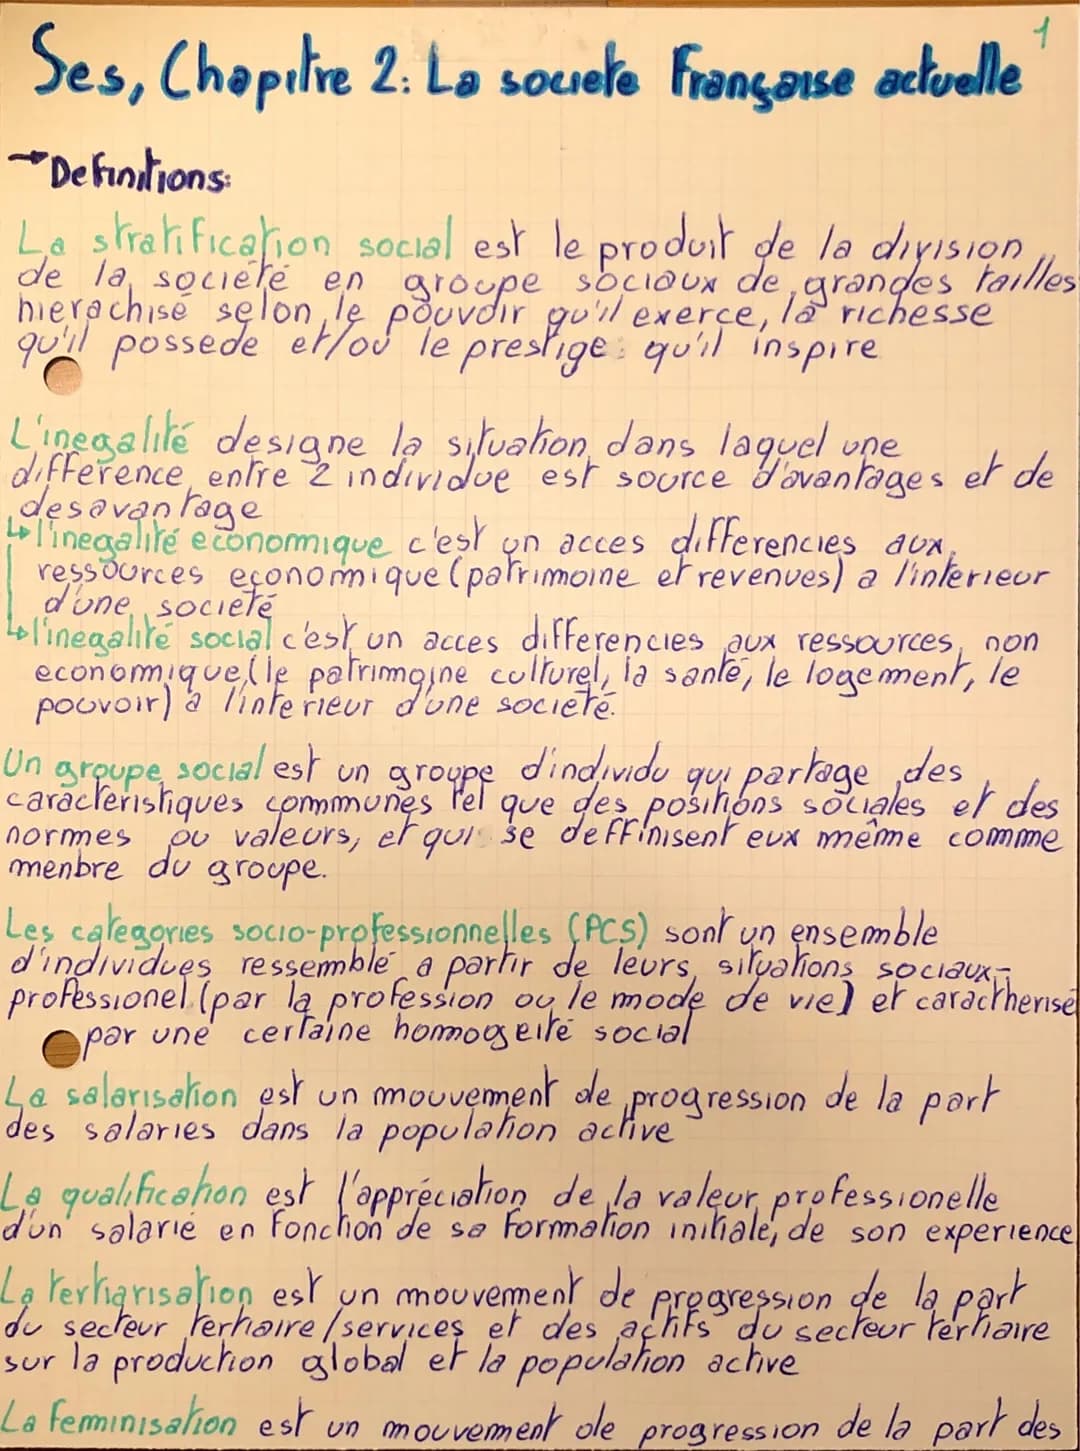 1
Ses, Chapitre 2: La societe Française actuelle
→ Definitions:
La stratification social est le produit de la division
de la société en groupe sociaux de grandes tailles
hierachisé selon le pouvoir qu'il exerce, la richesse
qu'il possede et/ou le prestige qu'il inspire
L'inegalité designe la situation dans laquel une
difference entre 2 individue est source d'avantages et de
desavantage
↳ l'inegalité economique c'est un acces differencies aux
ressources economique (patrimoine et revenues) a l'interieur
d'une societé
↳ l'inegalité social c'est un acces differencies aux ressources non
economique (le patrimoine culturel, la santé, le logement, le
pouvoir) a l'interieur d'une societé.
Un groupe social est un groupe d'individu qui partage des
caracteristiques commmunes tel que des positions sociales et des
normes ou valeurs, et qui se deffinisent eux même comme
menbre du groupe.
Les categories socio-professionnelles (PCS) sont un ensemble
d'individues ressemblé a partir de leurs situations sociaux-
professionel (par la profession ou le mode de vie) et caractherisé
par une certaine homogeité social
La salarisation est un mouvement de progression de la part
des salaries dans la population active
La qualification est l'appréciation de la valeur professionelle
d'un salarié en fonction de sa formation initiale, de son experience
La tertiarisation est un mouvement de progression de la part
du secteur tertiaire/services et des actifs du secteur tertiaire
sur la production global et la population active
La feminisation est un mouvement de progression de la part des